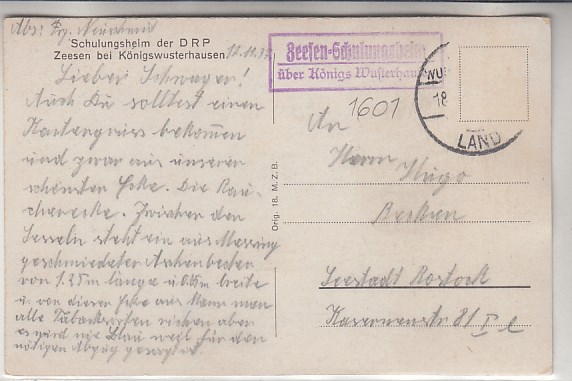 Abs: Frz. Neumann
Schulungsheim der DRP
Zeesen bei Königswusterhausen
12.11.37
Zeesen-Schulungsheim
über Königs Wusterhau
1601
WU
18
LAND
Lieber Schwager!
Auch Du solltest einen
Kartengruss bekommen
und zwar aus unserer
schönsten Ecke. Die Rau-
cherecke. Zwischen den
Sesseln steht ein aus Messing
geschmiedeter Aschenbecher
von 1.25m länge u. 0.65m breite
u. von dieser Ecke aus kann man
alle Tabaksorten riechen aber
es wird nie blau weil für den
nötigen Abzug gesorgt ist.
Orig. 18. M.Z.B.
An
Herrn Hugo
Seestadt Rostock
Kasernenstr 81 I l